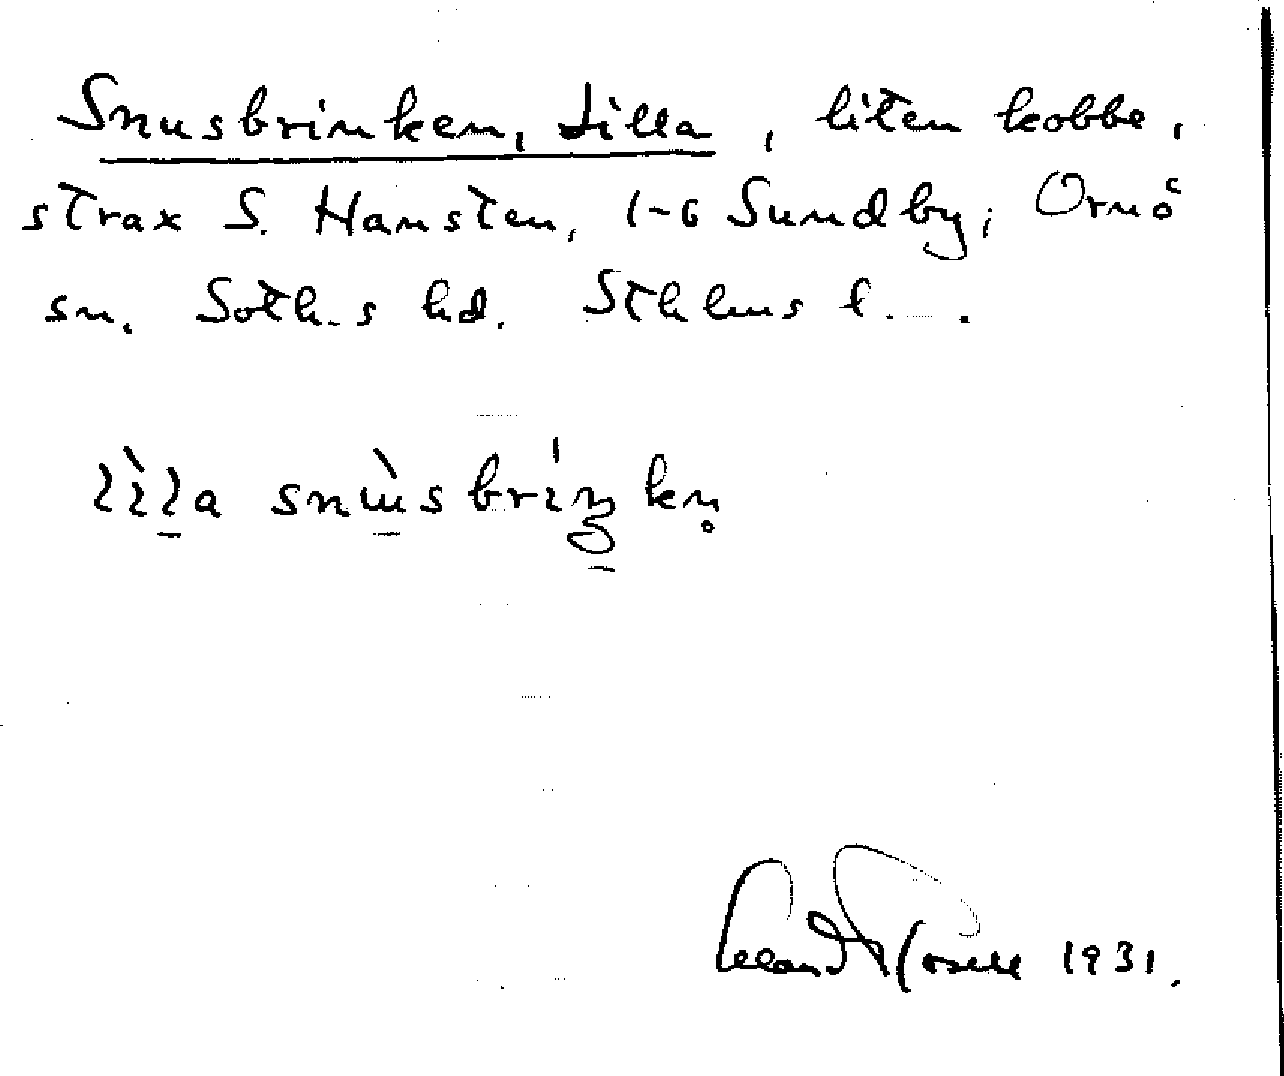 Snusbrinken, Lilla, liten kobbe,
strax S. Hansten, 1-6 Sundby, Ornö
sn. Soth.s hd. Sthlms l.
lìla snùsbriŋkn̥
1931.